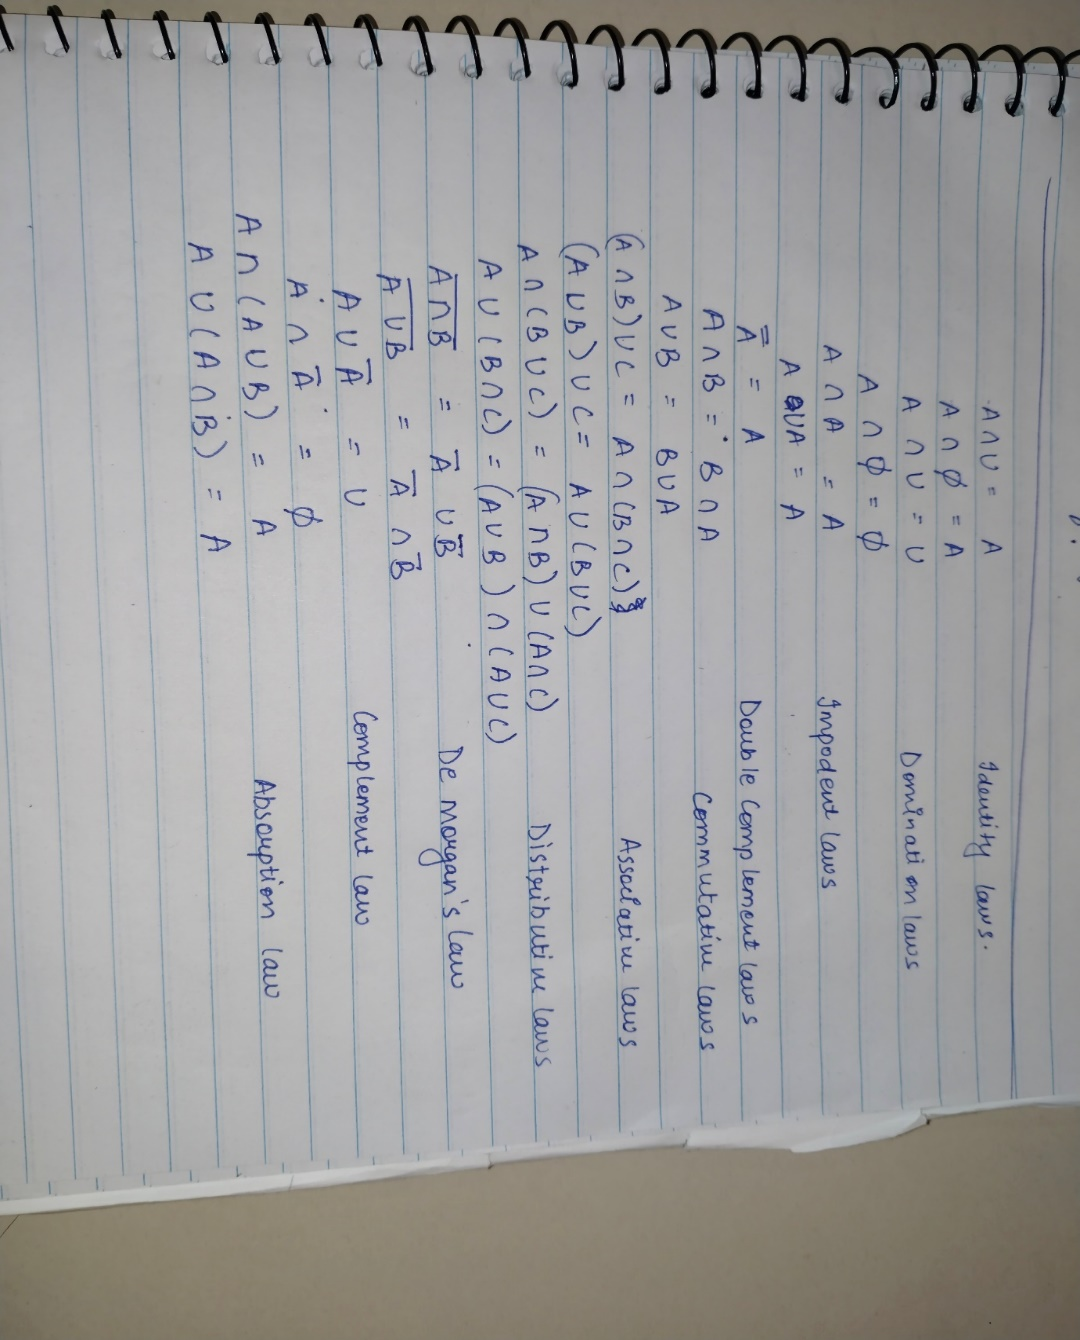 A ∩ U = A Identity laws.
A ∩ ϕ = A
A ∩ U = U Domination laws
A ∩ ϕ = ϕ
A ∩ A = A Impodent laws
A ∪ A = A
A̿ = A Double Complement laws
A ∩ B = B ∩ A Commutative laws
A ∪ B = B ∪ A
(A ∩ B) ∪ C = A ∩ (B ∩ C) Assolative laws
(A ∪ B) ∪ C = A ∪ (B ∪ C)
A ∩ (B ∪ C) = (A ∩ B) ∪ (A ∩ C) Distributive laws
A ∪ (B ∩ C) = (A ∪ B) ∩ (A ∪ C)
A̅ ̅∩̅ ̅B̅ = A̅ ∪ B̅ De morgan's law
A̅ ̅∪̅ ̅B̅ = A̅ ∩ B̅
A ∪ A̅ = U Complement law
A ∩ A̅ = ϕ
A ∩ (A ∪ B) = A Absorption law
A ∪ (A ∩ B) = A